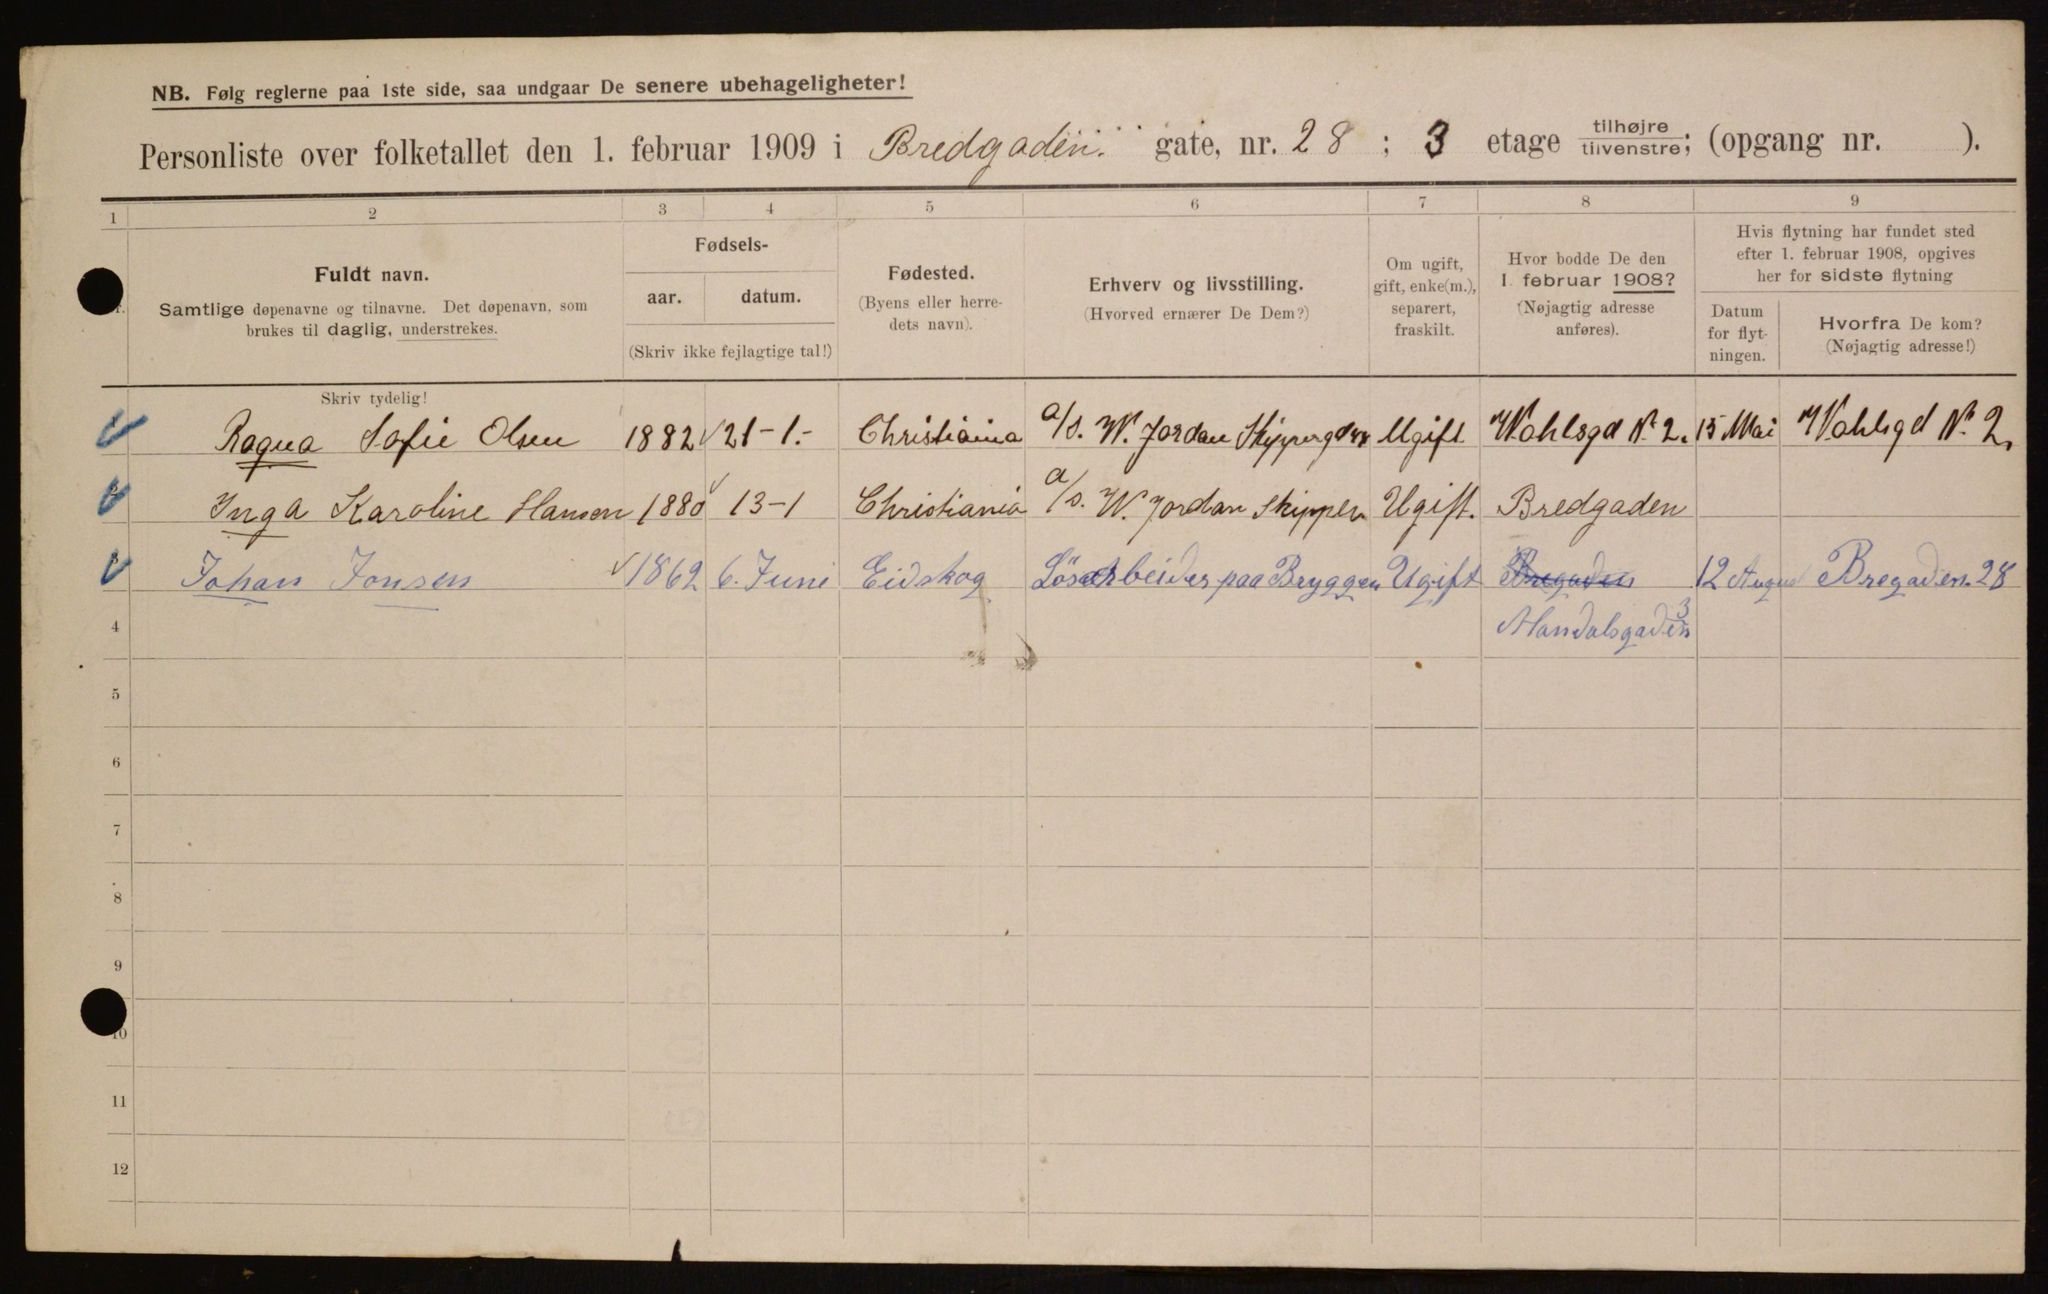 NB. Følg reglerne paa 1ste side, saa undgaar De senere ubehageligheter!
Personliste over folketallet den 1. februar 1909 i Bredgaden. gate, nr. 28 ; 3 etage tilhøjre tilvenstre; (opgang nr. ).
1 2 3 4 5 6 7 8 9
Fuldt navn.
Samtlige døpenavne og tilnavne. Det døpenavn, som
brukes til daglig, understrekes.
Fødsels-
aar. datum.
(Skriv ikke fejlagtige tal!)
Fødested.
(Byens eller herre-
dets navn).
Erhverv og livsstilling.
(Hvorved ernærer De Dem?)
Om ugift,
gift, enke(m.),
separert,
fraskilt.
Hvor bodde De den
1. februar 1908?
(Nøjagtig adresse
anføres).
Hvis flytning har fundet sted
efter 1. februar 1908, opgives
her for sidste flytning
Datum
for flyt-
ningen.
Hvorfra De kom?
(Nøjagtig adresse!)
Skriv tydelig!
Ragna Sofie Olsen 1882 21-1.- Christiania a/s. W. Jordan Ugift Wahlsgd No 2. 15 Mai Wahlsgd No 2.
Inga Karoline Hansen 1880 13-1 Christiania a/s. W. Jordan Skipper Ugift. Bredgaden
Johan Jonsen 1862 6. Juni Eidskog Løsarbeider paa Bryggen Ugift Bregaden 12 August Bregaden 28
4 Mandalsgaden 3
5
6
7
8
9
10
11
12